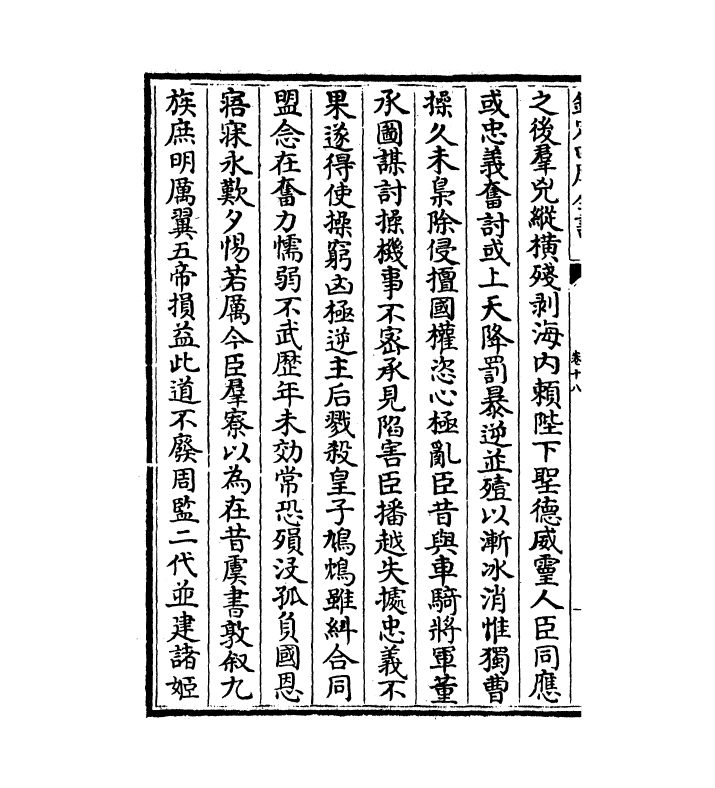 之後羣兇縱橫殘剥海内賴陛下聖德威靈人臣同應
或忠義奮討或上天降罰暴逆並殪以漸冰消惟獨曹
操久未梟除侵擅國權恣心極亂臣昔與車騎將軍董
承圖謀討操機事不宻承見陷害臣播越失據忠義不
果遂得使操窮凶極逆主后戮殺皇子鳩鴆雖糾合同
盟念在奮力懦弱不武歴年未効常恐殞沒孤負國恩
寤寐永歎夕惕若厲今臣羣寮以為在昔虞書敦叙九
族庶明厲翼五帝損益此道不廢周監二代並建諸姬
卷十八